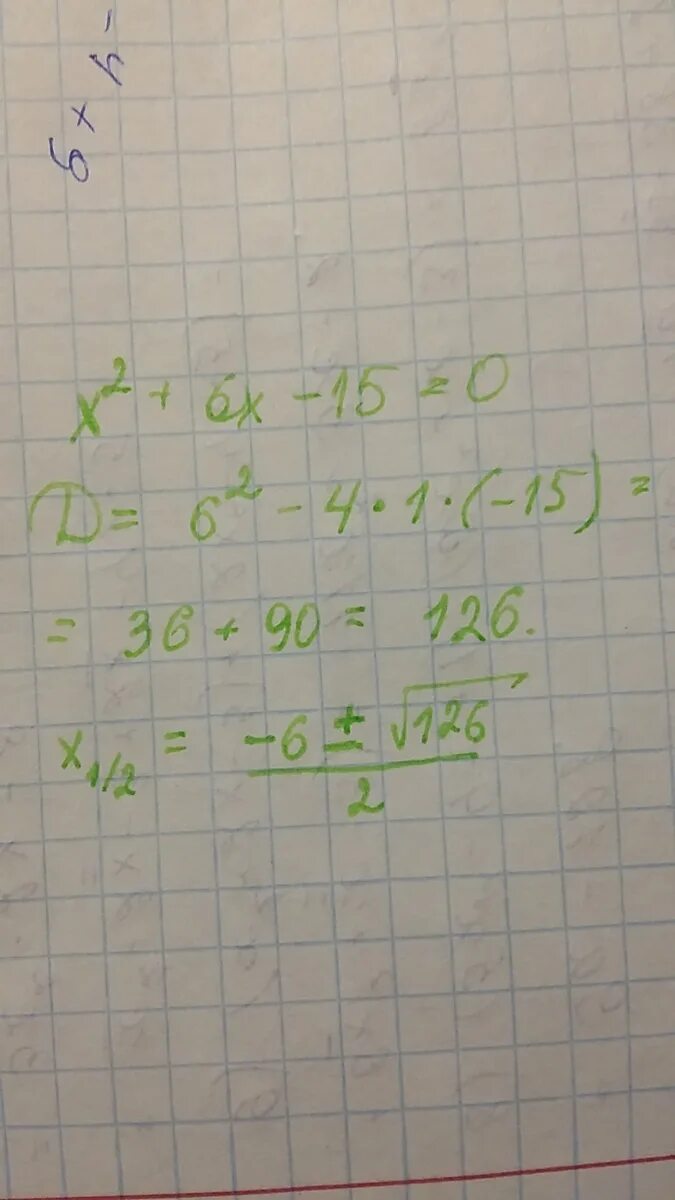 x² + 6x - 15 = 0
D = 6² - 4 · 1 · (-15) =
= 36 + 90 = 126.
x₁/₂ = (-6 ± √126) / 2